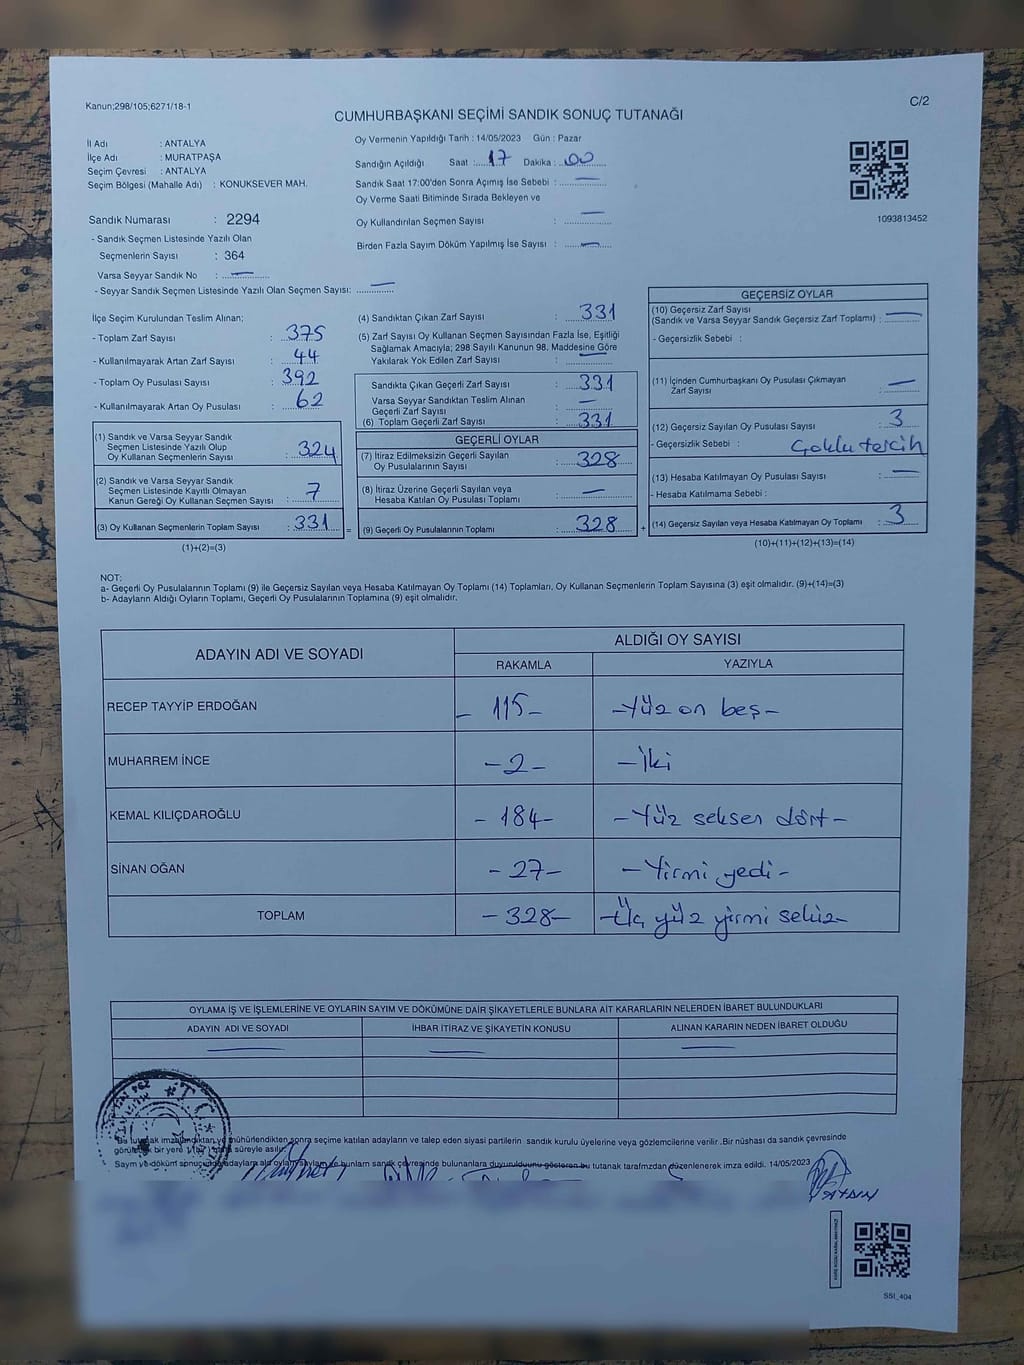 Kanun;298/105;6271/18-1
C/2
CUMHURBAŞKANI SEÇİMİ SANDIK SONUÇ TUTANAĞI
İl Adı : ANTALYA
İlçe Adı : MURATPAŞA
Seçim Çevresi : ANTALYA
Seçim Bölgesi (Mahalle Adı) : KONUKSEVER MAH.
Sandık Numarası : 2294
- Sandık Seçmen Listesinde Yazılı Olan
Seçmenlerin Sayısı : 364
Varsa Seyyar Sandık No : —
- Seyyar Sandık Seçmen Listesinde Yazılı Olan Seçmen Sayısı: —
Oy Vermenin Yapıldığı Tarih : 14/05/2023 Gün : Pazar
Sandığın Açıldığı Saat : 17 Dakika : 00
Sandık Saat 17:00'den Sonra Açımış İse Sebebi : —
Oy Verme Saati Bitiminde Sırada Bekleyen ve
Oy Kullandırılan Seçmen Sayısı : —
Birden Fazla Sayım Döküm Yapılmış İse Sayısı : —
1093813452
İlçe Seçim Kurulundan Teslim Alınan;
- Toplam Zarf Sayısı : 375
- Kullanılmayarak Artan Zarf Sayısı : 44
- Toplam Oy Pusulası Sayısı : 392
- Kullanılmayarak Artan Oy Pusulası : 62
(1) Sandık ve Varsa Seyyar Sandık
Seçmen Listesinde Yazılı Olup
Oy Kullanan Seçmenlerin Sayısı : 324
(2) Sandık ve Varsa Seyyar Sandık
Seçmen Listesinde Kayıtlı Olmayan
Kanun Gereği Oy Kullanan Seçmen Sayısı : 7
(3) Oy Kullanan Seçmenlerin Toplam Sayısı : 331
(1)+(2)=(3)
(4) Sandıktan Çıkan Zarf Sayısı : 331
(5) Zarf Sayısı Oy Kullanan Seçmen Sayısından Fazla İse, Eşitliği
Sağlamak Amacıyla; 298 Sayılı Kanunun 98. Maddesine Göre
Yakılarak Yok Edilen Zarf Sayısı : —
Sandıkta Çıkan Geçerli Zarf Sayısı : 331
Varsa Seyyar Sandıktan Teslim Alınan
Geçerli Zarf Sayısı : —
(6) Toplam Geçerli Zarf Sayısı : 331
=
GEÇERLİ OYLAR
(7) İtiraz Edilmeksizin Geçerli Sayılan
Oy Pusulalarının Sayısı : 328
(8) İtiraz Üzerine Geçerli Sayılan veya
Hesaba Katılan Oy Pusulası Toplamı : —
(9) Geçerli Oy Pusulalarının Toplamı : 328
+
GEÇERSİZ OYLAR
(10) Geçersiz Zarf Sayısı
(Sandık ve Varsa Seyyar Sandık Geçersiz Zarf Toplamı) : —
- Geçersizlik Sebebi :
(11) İçinden Cumhurbaşkanı Oy Pusulası Çıkmayan
Zarf Sayısı : —
(12) Geçersiz Sayılan Oy Pusulası Sayısı : 3
- Geçersizlik Sebebi : Çoklu tercih
(13) Hesaba Katılmayan Oy Pusulası Sayısı : —
- Hesaba Katılmama Sebebi :
(14) Geçersiz Sayılan veya Hesaba Katılmayan Oy Toplamı : 3
(10)+(11)+(12)+(13)=(14)
NOT:
a- Geçerli Oy Pusulalarının Toplamı (9) ile Geçersiz Sayılan veya Hesaba Katılmayan Oy Toplamı (14) Toplamları, Oy Kullanan Seçmenlerin Toplam Sayısına (3) eşit olmalıdır. (9)+(14)=(3)
b- Adayların Aldığı Oyların Toplamı, Geçerli Oy Pusulalarının Toplamına (9) eşit olmalıdır.
ADAYIN ADI VE SOYADI
ALDIĞI OY SAYISI
RAKAMLA YAZIYLA
RECEP TAYYİP ERDOĞAN – 115 – – Yüz on beş –
MUHARREM İNCE – 2 – – İki
KEMAL KILIÇDAROĞLU – 184 – – Yüz seksen dört –
SİNAN OĞAN – 27 – – Yirmi yedi –
TOPLAM – 328 – – Üç yüz yirmi sekiz –
OYLAMA İŞ VE İŞLEMLERİNE VE OYLARIN SAYIM VE DÖKÜMÜNE DAİR ŞİKAYETLERLE BUNLARA AİT KARARLARIN NELERDEN İBARET BULUNDUKLARI
ADAYIN ADI VE SOYADI İHBAR İTİRAZ VE ŞİKAYETİN KONUSU ALINAN KARARIN NEDEN İBARET OLDUĞU
— — —
T.C.
Bu tutanak imzalandıktan ve mühürlendikten sonra seçime katılan adayların ve talep eden siyasi partilerin sandık kurulu üyelerine veya gözlemcilerine verilir. Bir nüshası da sandık çevresinde
bir yere süreyle asılır.
Sayım ve döküm bulunanlara duyurulduğunu gösteren bu tutanak tarafımızdan düzenlenerek imza edildi. 14/05/2023
AYDIN
SSİ_404